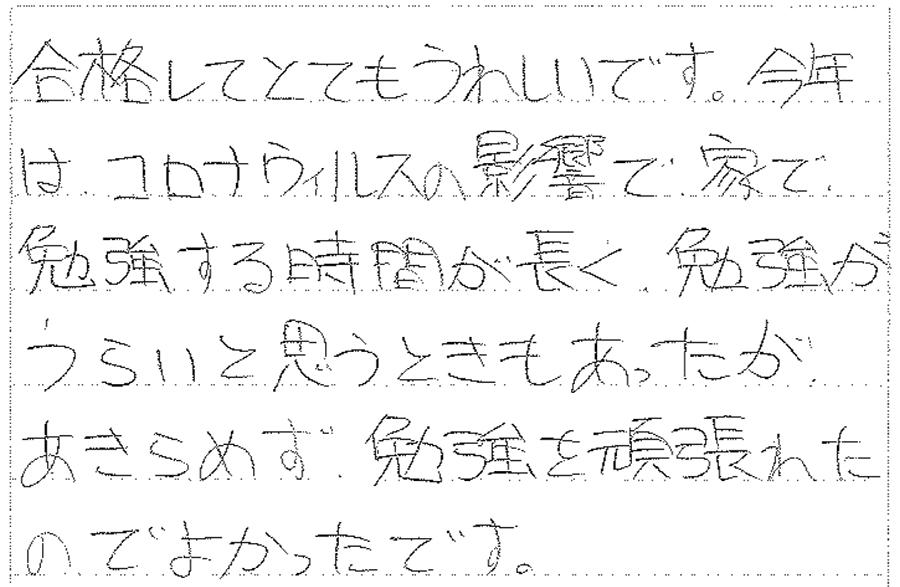 合格してとてもうれしいです。今年
は、コロナウィルスの影響で、家で、
勉強する時間が長く、勉強が
うらいと思うときもあったが、
あきらめず、勉強を頑張れた
のでよかったです。